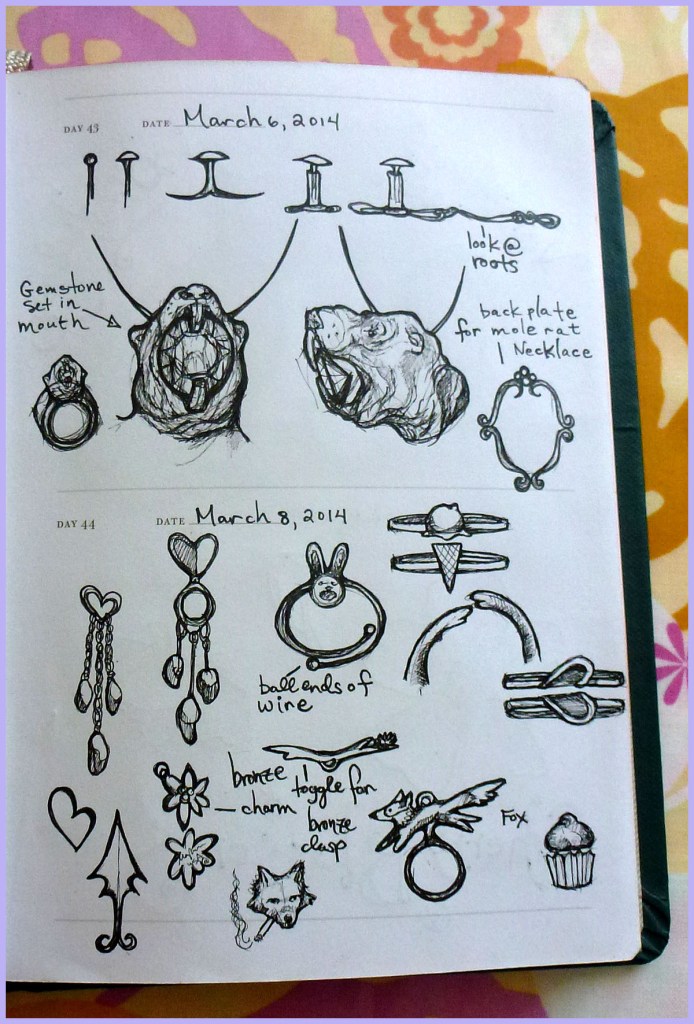 DAY 43 DATE March 6, 2014
look @
roots
Gemstone
set in
mouth
back plate
for mole rat
Necklace
DAY 44 DATE March 8, 2014
ball ends of
wire
bronze
charm
toggle for
bronze
clasp
Fox